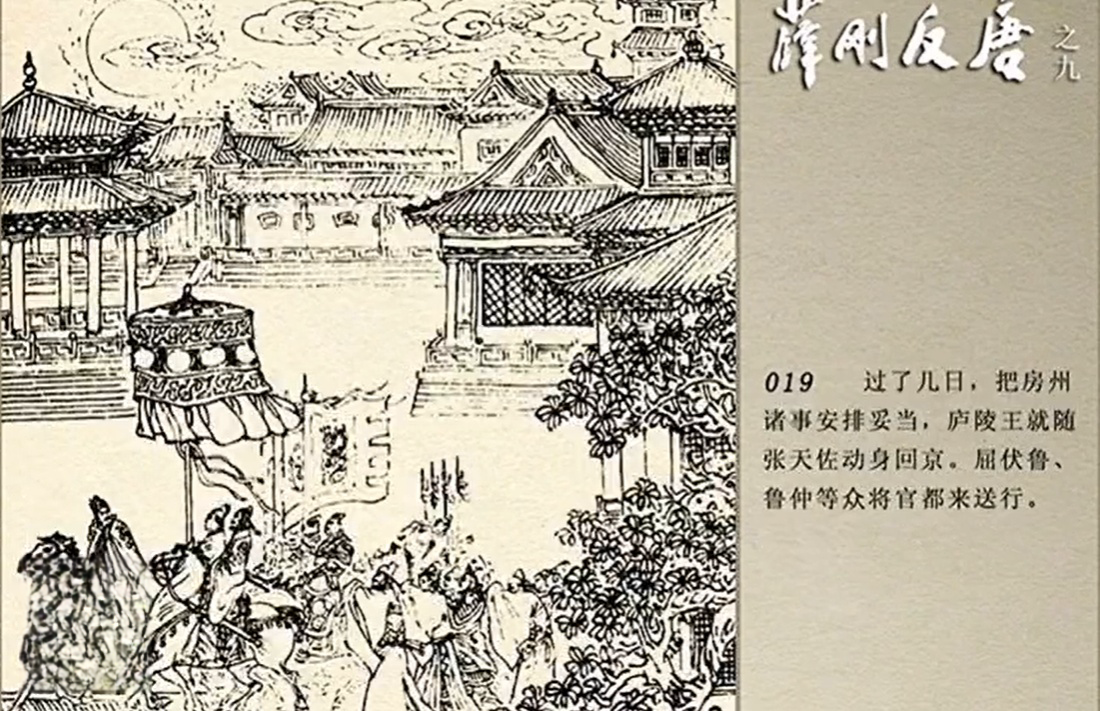 薛刚反唐
之九
019 过了几日，把房州
诸事安排妥当，庐陵王就随
张天佐动身回京。屈伏鲁、
鲁仲等众将官都来送行。